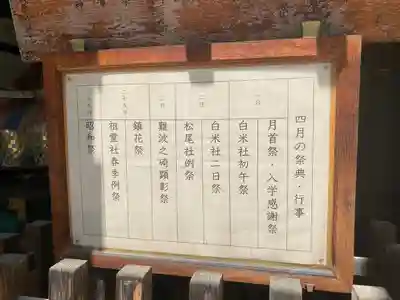 四月の祭典・行事
一日
月首祭・入学感謝祭
白米社初午祭
二日
白米社二日祭
松尾社例祭
難波之碕顕彰祭
鎮花祭
祖霊社春季例祭
昭和祭